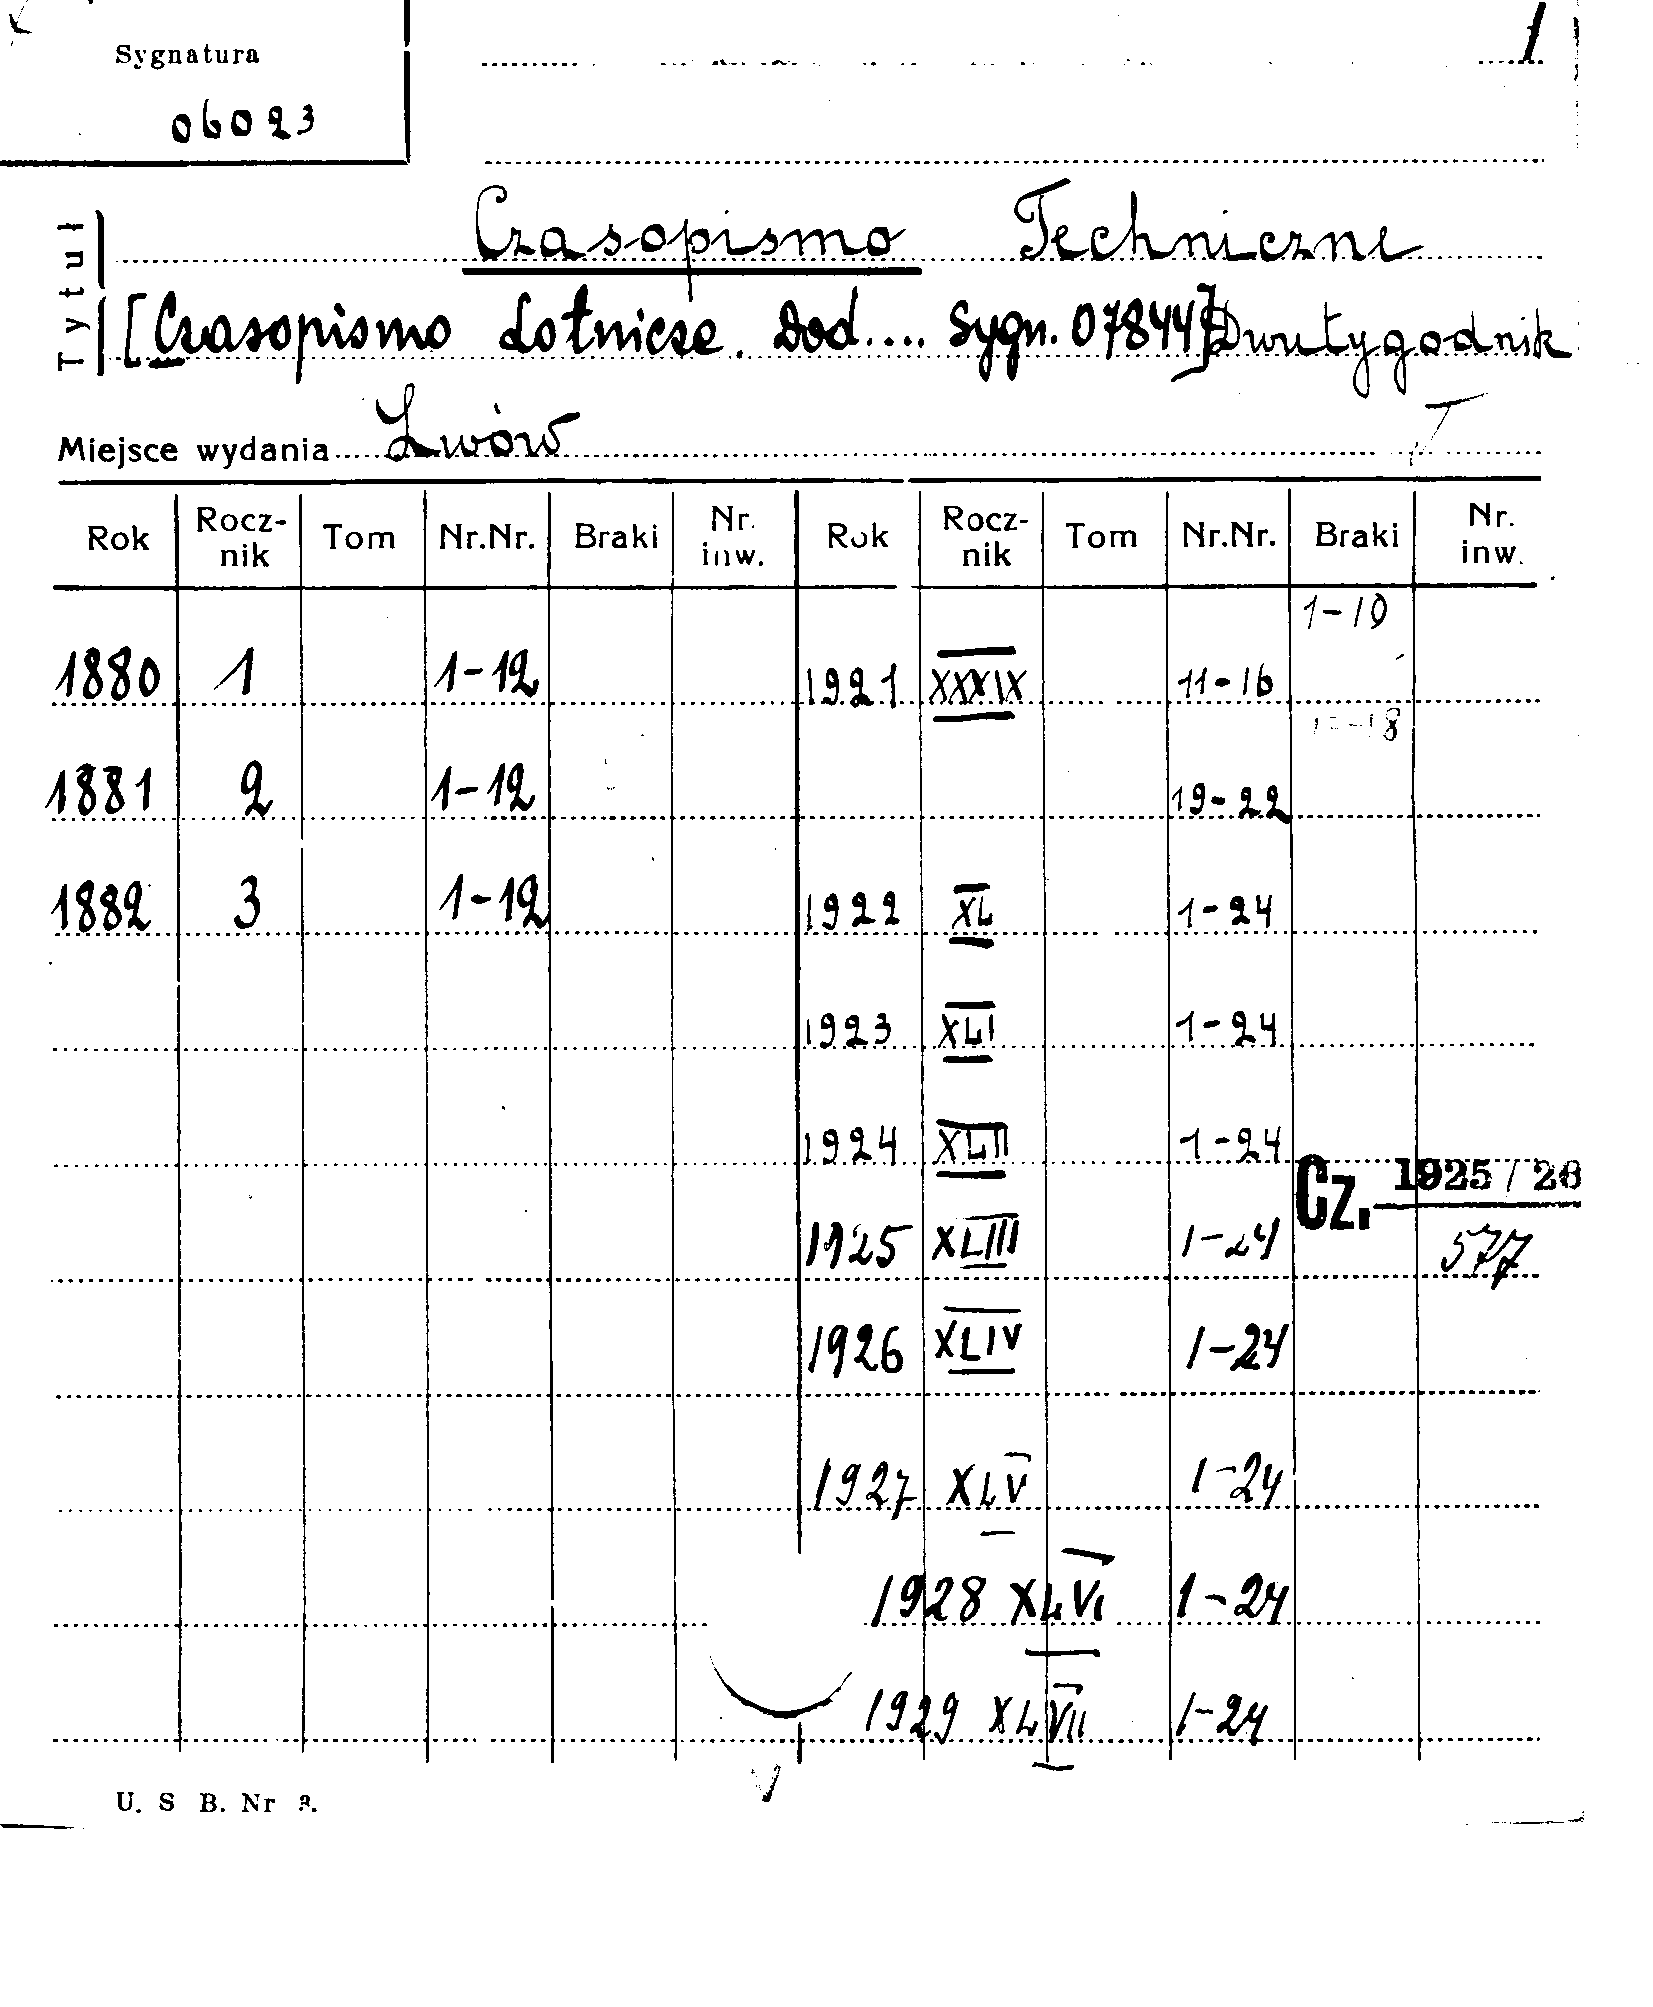 1
Sygnatura
06023
Tytuł
Czasopismo Techniczne
[Czasopismo Lotnicze. Dod.... Sygn. 07844] Dwutygodnik
Miejsce wydania Lwów
Rok Rocz-nik Tom Nr.Nr. Braki Nr. inw. Rok Rocz-nik Tom Nr.Nr. Braki Nr. inw.
1-10
1880 1 1-12 1921 XXXIX 11-16
-18
1881 2 1-12 19-22
1882 3 1-12 1922 XL 1-24
1923 XLI 1-24
1924 XLII 1-24
Cz. 1925/26
1925 XLIII 1-24 577
1926 XLIV 1-24
1927 XLV 1-24
1928 XLVI 1-24
1929 XLVII 1-24
U. S B. Nr